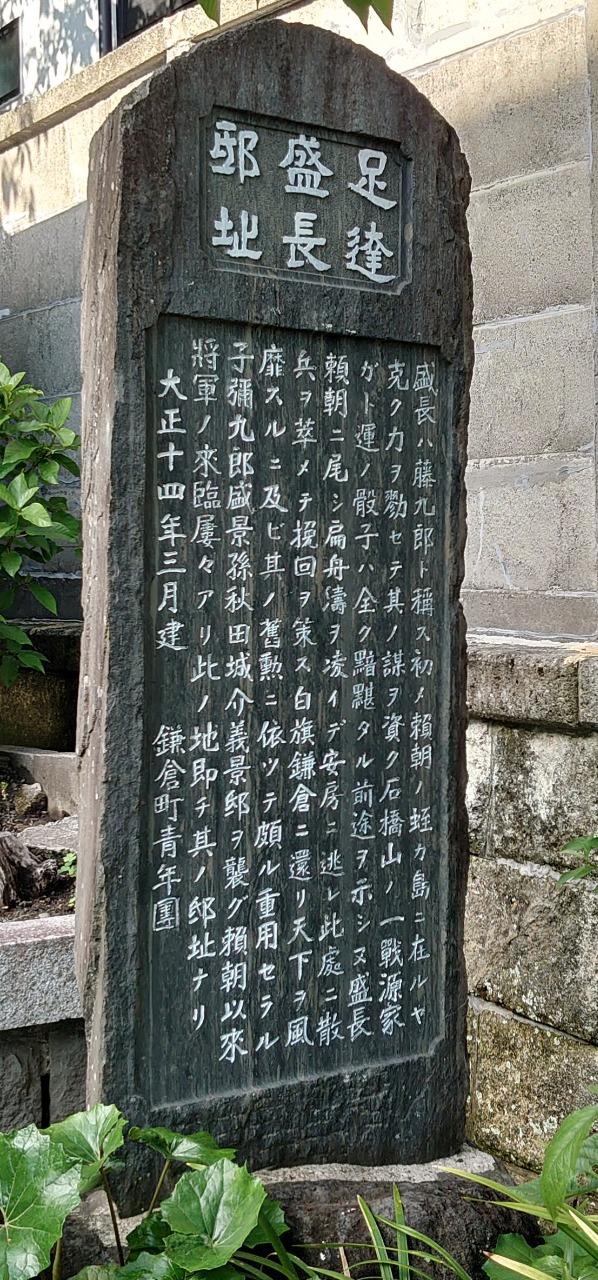 足達
盛長
邸址
盛長ハ藤九郎ト稱ス初メ頼朝ノ蛭カ島ニ在ルヤ
克ク力ヲ勠セテ其ノ謀ヲ資ク石橋山ノ一戰源家
ガト運ノ骰子ハ全ク黯黮タル前途ヲ示シヌ盛長
頼朝ニ尾シ扁舟濤ヲ凌イデ安房ニ逃レ此處ニ散
兵ヲ萃メテ挽回ヲ策ス白旗鎌倉ニ還リ天下ヲ風
靡スルニ及ビ其ノ舊勲ニ依ツテ頗ル重用セラル
子彌九郎盛景孫秋田城介義景邸ヲ襲グ頼朝以來
將軍ノ來臨屢々アリ此ノ地即チ其ノ邸址ナリ
大正十四年三月建 鎌倉町青年團